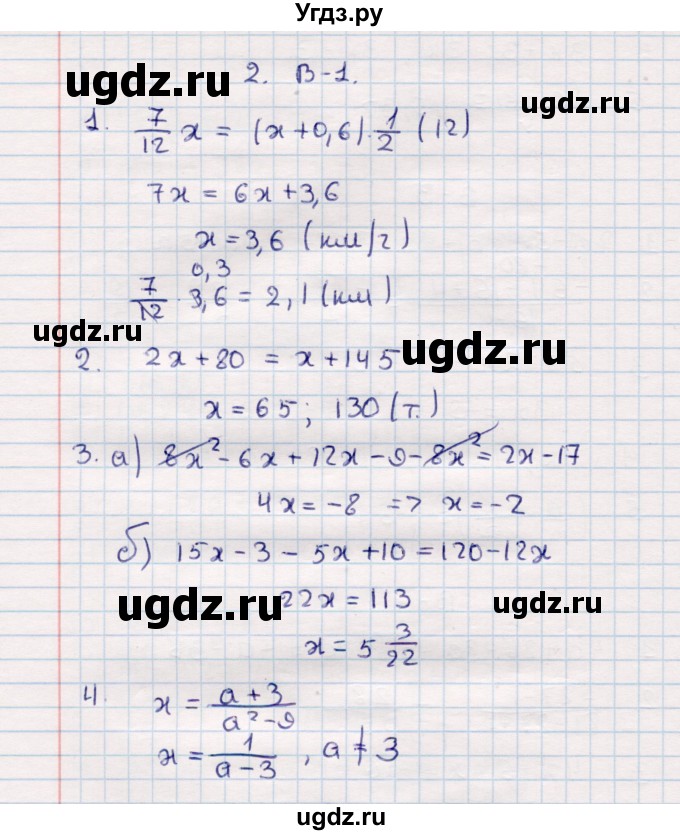 Угдз.ру
ugdz.ru 2. В-1. ugdz.ru
1. 7/12 x = (x+0,6)·1/2 (12)
7x = 6x+3,6
x = 3,6 (км/г)
0,3
7/12 · 3,6 = 2,1 (км)
ugdz.ru
2. 2x+80 = x+145 ugdz.ru
x = 65; 130 (т.)
3. а) 8x²-6x+12x-9-8x² = 2x-17
4x = -8 => x = -2
б) 15x-3-5x+10 = 120-12x
ugdz.ru 22x = 113 ugdz.ru
x = 5 3/22
4. x = a+3/a²-9
x = 1/a-3, a ≠ 3
ugdz.ru